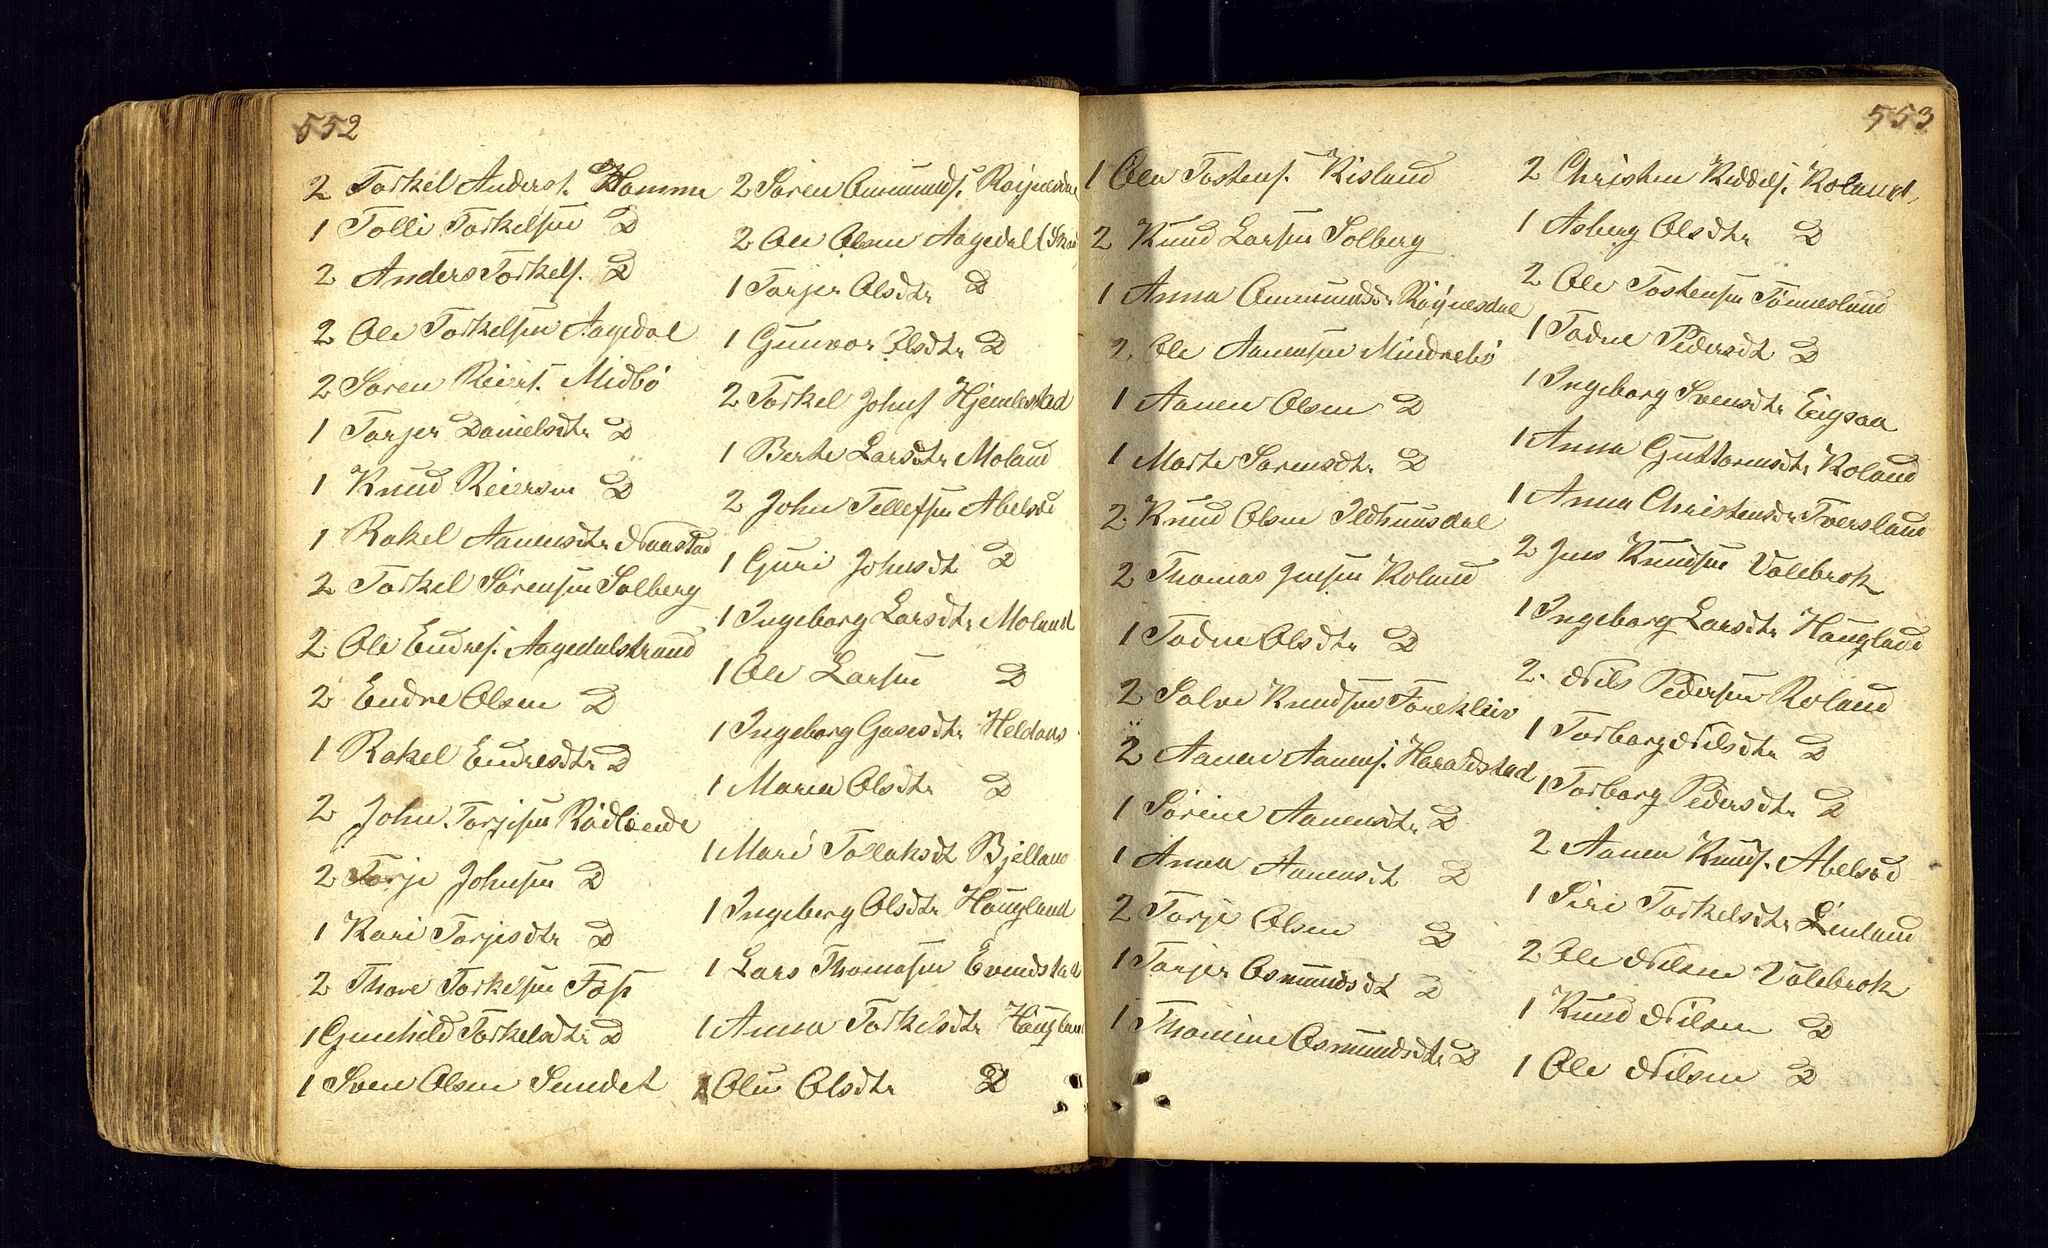 552
2 Torkel Anders. Homme
1 Tolli Torkelsen D
2 Anders Torkels. D
2 Ole Torkelsen Aagedal
2 Søren Reiers. Midbö
1 Torjer Danielsdtr D
1 Knud Reiersen D
1 Rakel Aanensdtr Naastad
2 Torkel Sørensen Solberg
2 Ole Endres. Aagedalstrand
2 Endre Olsen D
1 Rakel Endresdtr D
2 John Torjesen Rødlænde
2 Torje Johnsen D
1 Kari Torjesdtr D
2 Thore Torkelsen Fos
1 Gunhild Torkelsdtr D
1 Sven Olsen Sundet
2 Søren Omunds. Røynesdal
2 Ole Olsen Aagedal
1 Torjer Olsdtr D
1 Gunvor Olsdtr D
2 Torkel Johns Hjemlestad
1 Berte Larsdtr Moland
2 John Tellefsen Abelsød
1 Guri Johnsdt D
1 Ingeborg Larsdtr Moland
1 Ole Larsen D
1 Ingeborg Gasesdtr Heldaas
1 Maren Olsdtr D
1 Mari Tollaksdt Bjelland
1 Ingeborg Olsdtr Haugland
1 Lars Thomasen Evendstad
1 Anna Torkelsdtr Haugland
1 Olu Olsdtr D
553
1 Ole Tostens. Risland
2 Knud Larsen Solberg
1 Anna Omundsdr Røynesdal
2 Ole Aanensen Mindrebö
1 Aanen Olsen D
1 Marte Sørensdtr D
2 Knud Olsen Ildhuusdal
2 Thomas Jensen Roland
1 Todne Olsdtr D
2 Salve Knudsen Foreklev
2 Aanen Aanens. Haraldstad
1 Sørine Aanensdtr D
1 Anna Aanensdt D
2 Torje Olsen D
1 Torjer Osmundsdt D
1 Thomine Osmundsdtr D
2 Christen Keddels. Roland
1 Asberg Olsdtr D
2 Ole Tostensen Tønnesland
1 Todne Pedersdt D
1 Ingeborg Svensdtr Eigsaa
1 Anna Guttormsdtr Roland
1 Anna Christensdr Tversland
2 Jens Knudsen Valebrok
1 Ingeborg Larsdtr Haugland
2. Nils Pedersen Roland
1 Torborg Nilsdtr D
1 Torborg Pedersdtr D
2 Aanen Knuds. Abelsød
1 Siri Torkelsdtr Linland
2 Ole Nilsen Valebrok
1 Knud Nilsen D
1 Ole Nilsen D